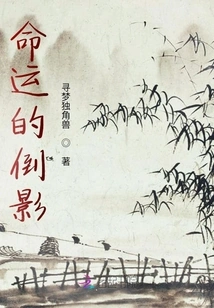 命运的倒影
寻梦独角兽◎著